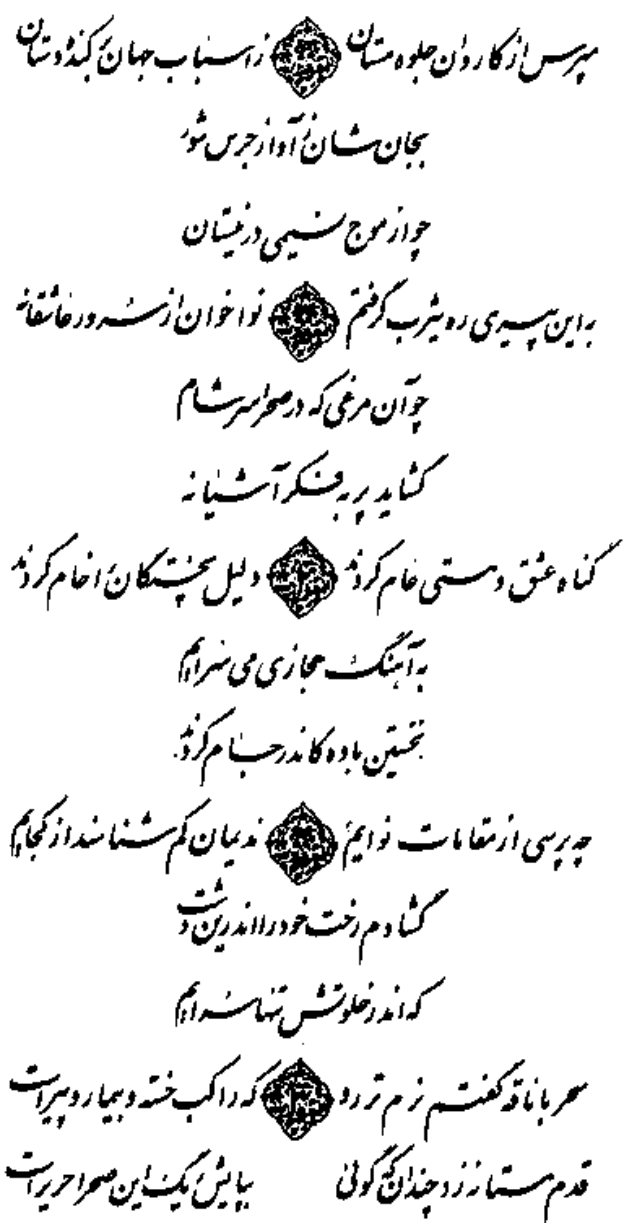 مپرس از کاروان جلوه مستان ز اسباب جهان برکنده دستان
بجان شان ز آواز جرس شور
چو از موج نسیمی در نیستان
به این پیری ره یثرب گرفتم نوا خوان از سرود عاشقانه
چو آن مرغی که در صحرا سر شام
کشاید پر به فکر آشیانه
گناه عشق و مستی عام کردند دلیل پختگان را خام کردند
به آهنگ حجازی می سرایم
نخستین باده کاندر جام کردند
چه پرسی از مقامات نوایم ندیمان کم شناسند از کجایم
کشادم رخت خود را اندرین دشت
که اندر خلوتش تنها سرایم
سحر با ناقه گفتم نرم تر رو که راکب خسته و بیمار و پیر است
قدم مستانه زد چندان که گوئی بپایش ریگ این صحرا حریر است